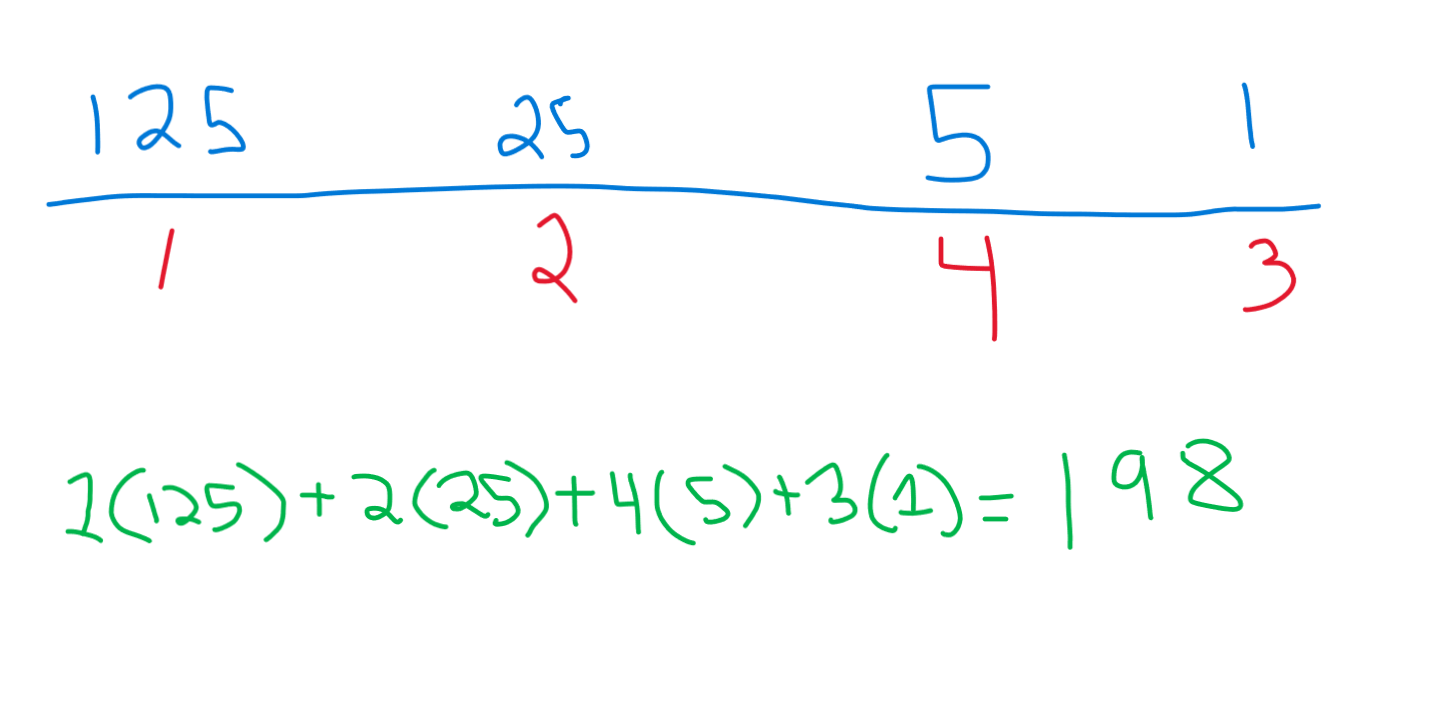 125 25 5 1
1 2 4 3
1(125)+2(25)+4(5)+3(1)=198